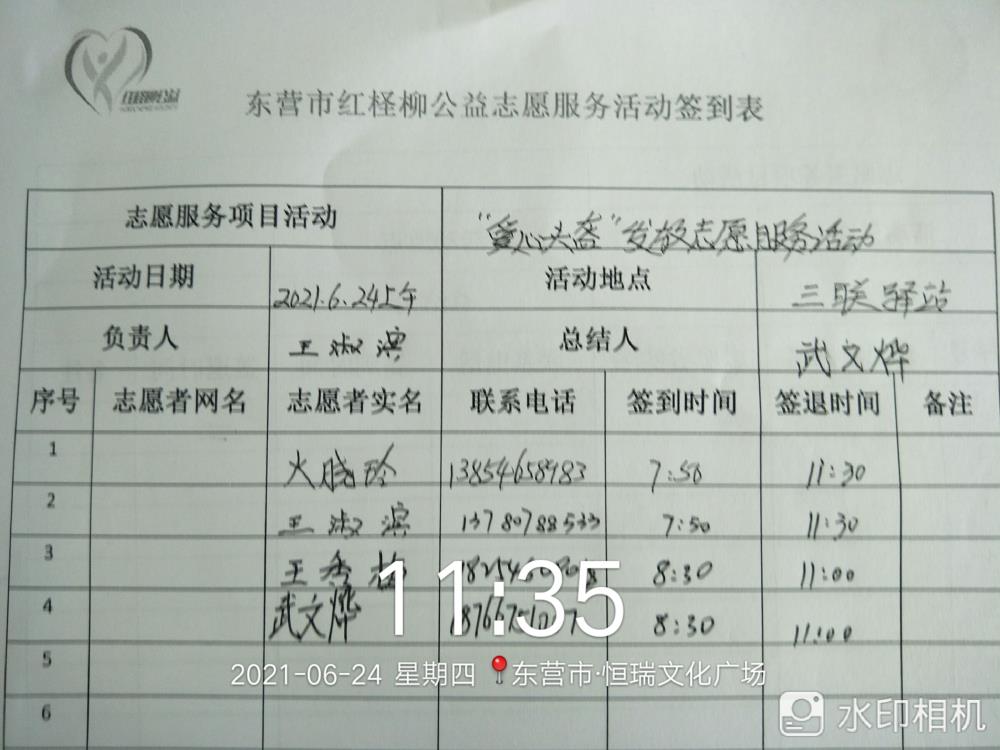 东营市红柽柳公益志愿服务活动签到表
志愿服务项目活动 "爱心头盔"发放志愿服务活动
活动日期 2021.6.24上午 活动地点 三联驿站
负责人 王淑滨 总结人 武文烨
序号 志愿者网名 志愿者实名 联系电话 签到时间 签退时间 备注
1 13854658983 7:50 11:30
2 王淑滨 13780788533 7:50 11:30
3 王秀 8:30 11:00
4 武文烨 8:30 11:00
5
6
11:35
2021-06-24 星期四 东营市·恒瑞文化广场
水印相机